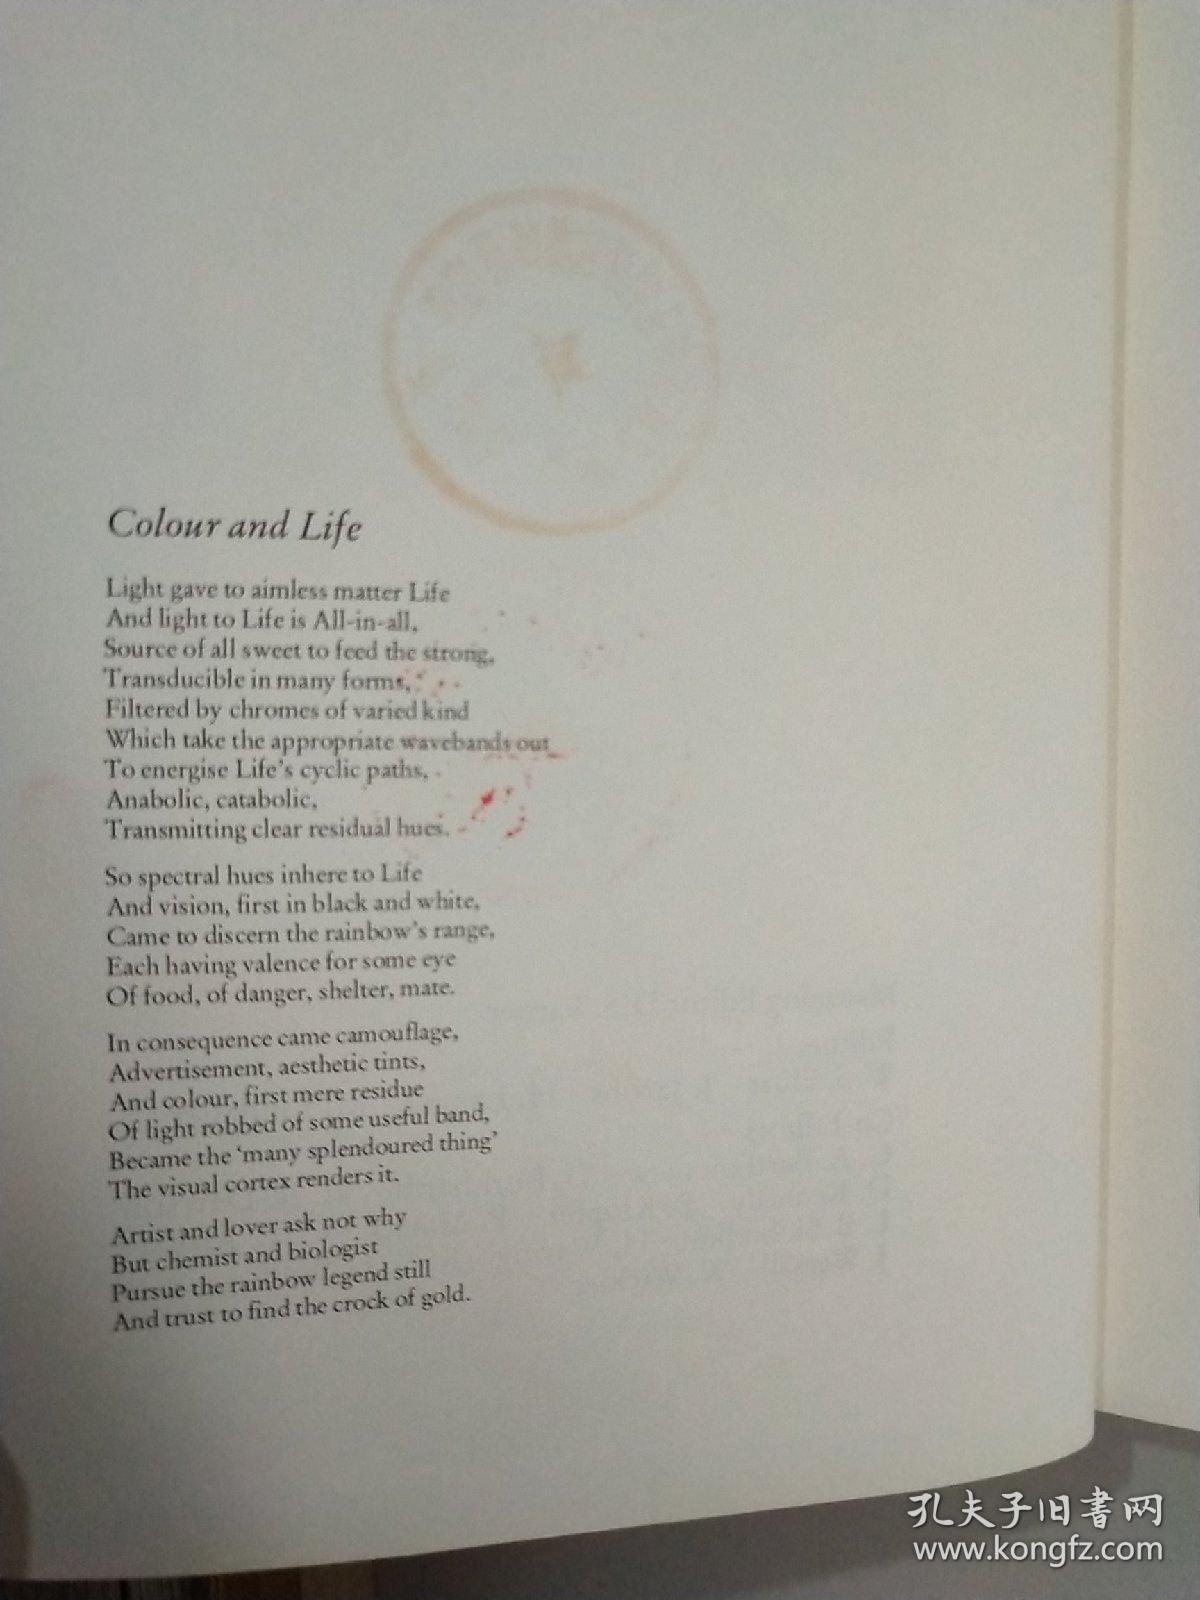 Colour and Life
Light gave to aimless matter Life
And light to Life is All-in-all,
Source of all sweet to feed the strong,
Transducible in many forms,
Filtered by chromes of varied kind
Which take the appropriate wavebands out
To energise Life's cyclic paths,
Anabolic, catabolic,
Transmitting clear residual hues.
So spectral hues inhere to Life
And vision, first in black and white,
Came to discern the rainbow's range,
Each having valence for some eye
Of food, of danger, shelter, mate.
In consequence came camouflage,
Advertisement, aesthetic tints,
And colour, first mere residue
Of light robbed of some useful band,
Became the 'many splendoured thing'
The visual cortex renders it.
Artist and lover ask not why
But chemist and biologist
Pursue the rainbow legend still
And trust to find the crock of gold.
孔夫子旧书网
www.kongfz.com